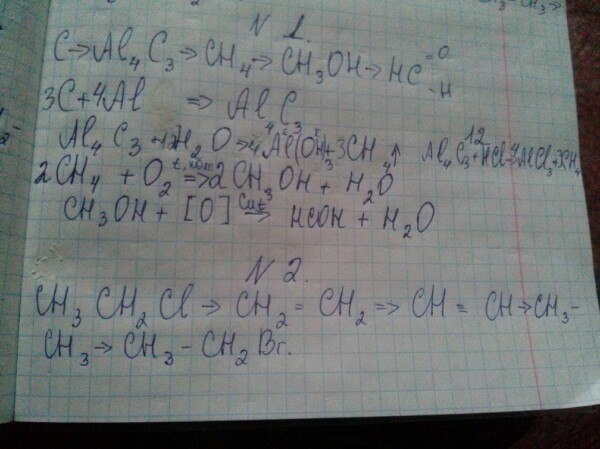 N 1.
C → Al₄C₃ → CH₄ → CH₃OH → HC=O-H
3C + 4Al ⇒ Al₄C₃
Al₄C₃ + 12H₂O → 4Al(OH)₃ + 3CH₄↑ Al₄C₃ + 12HCl → 4AlCl₃ + 3CH₄
2CH₄ + O₂ t, кат ⇒ 2CH₃OH + H₂O
CH₃OH + [O] Cu t ⇒ HCOH + H₂O
N 2.
CH₃CH₂Cl → CH₂ = CH₂ ⇒ CH ≡ CH → CH₃ -
CH₃ → CH₃ - CH₂Br.